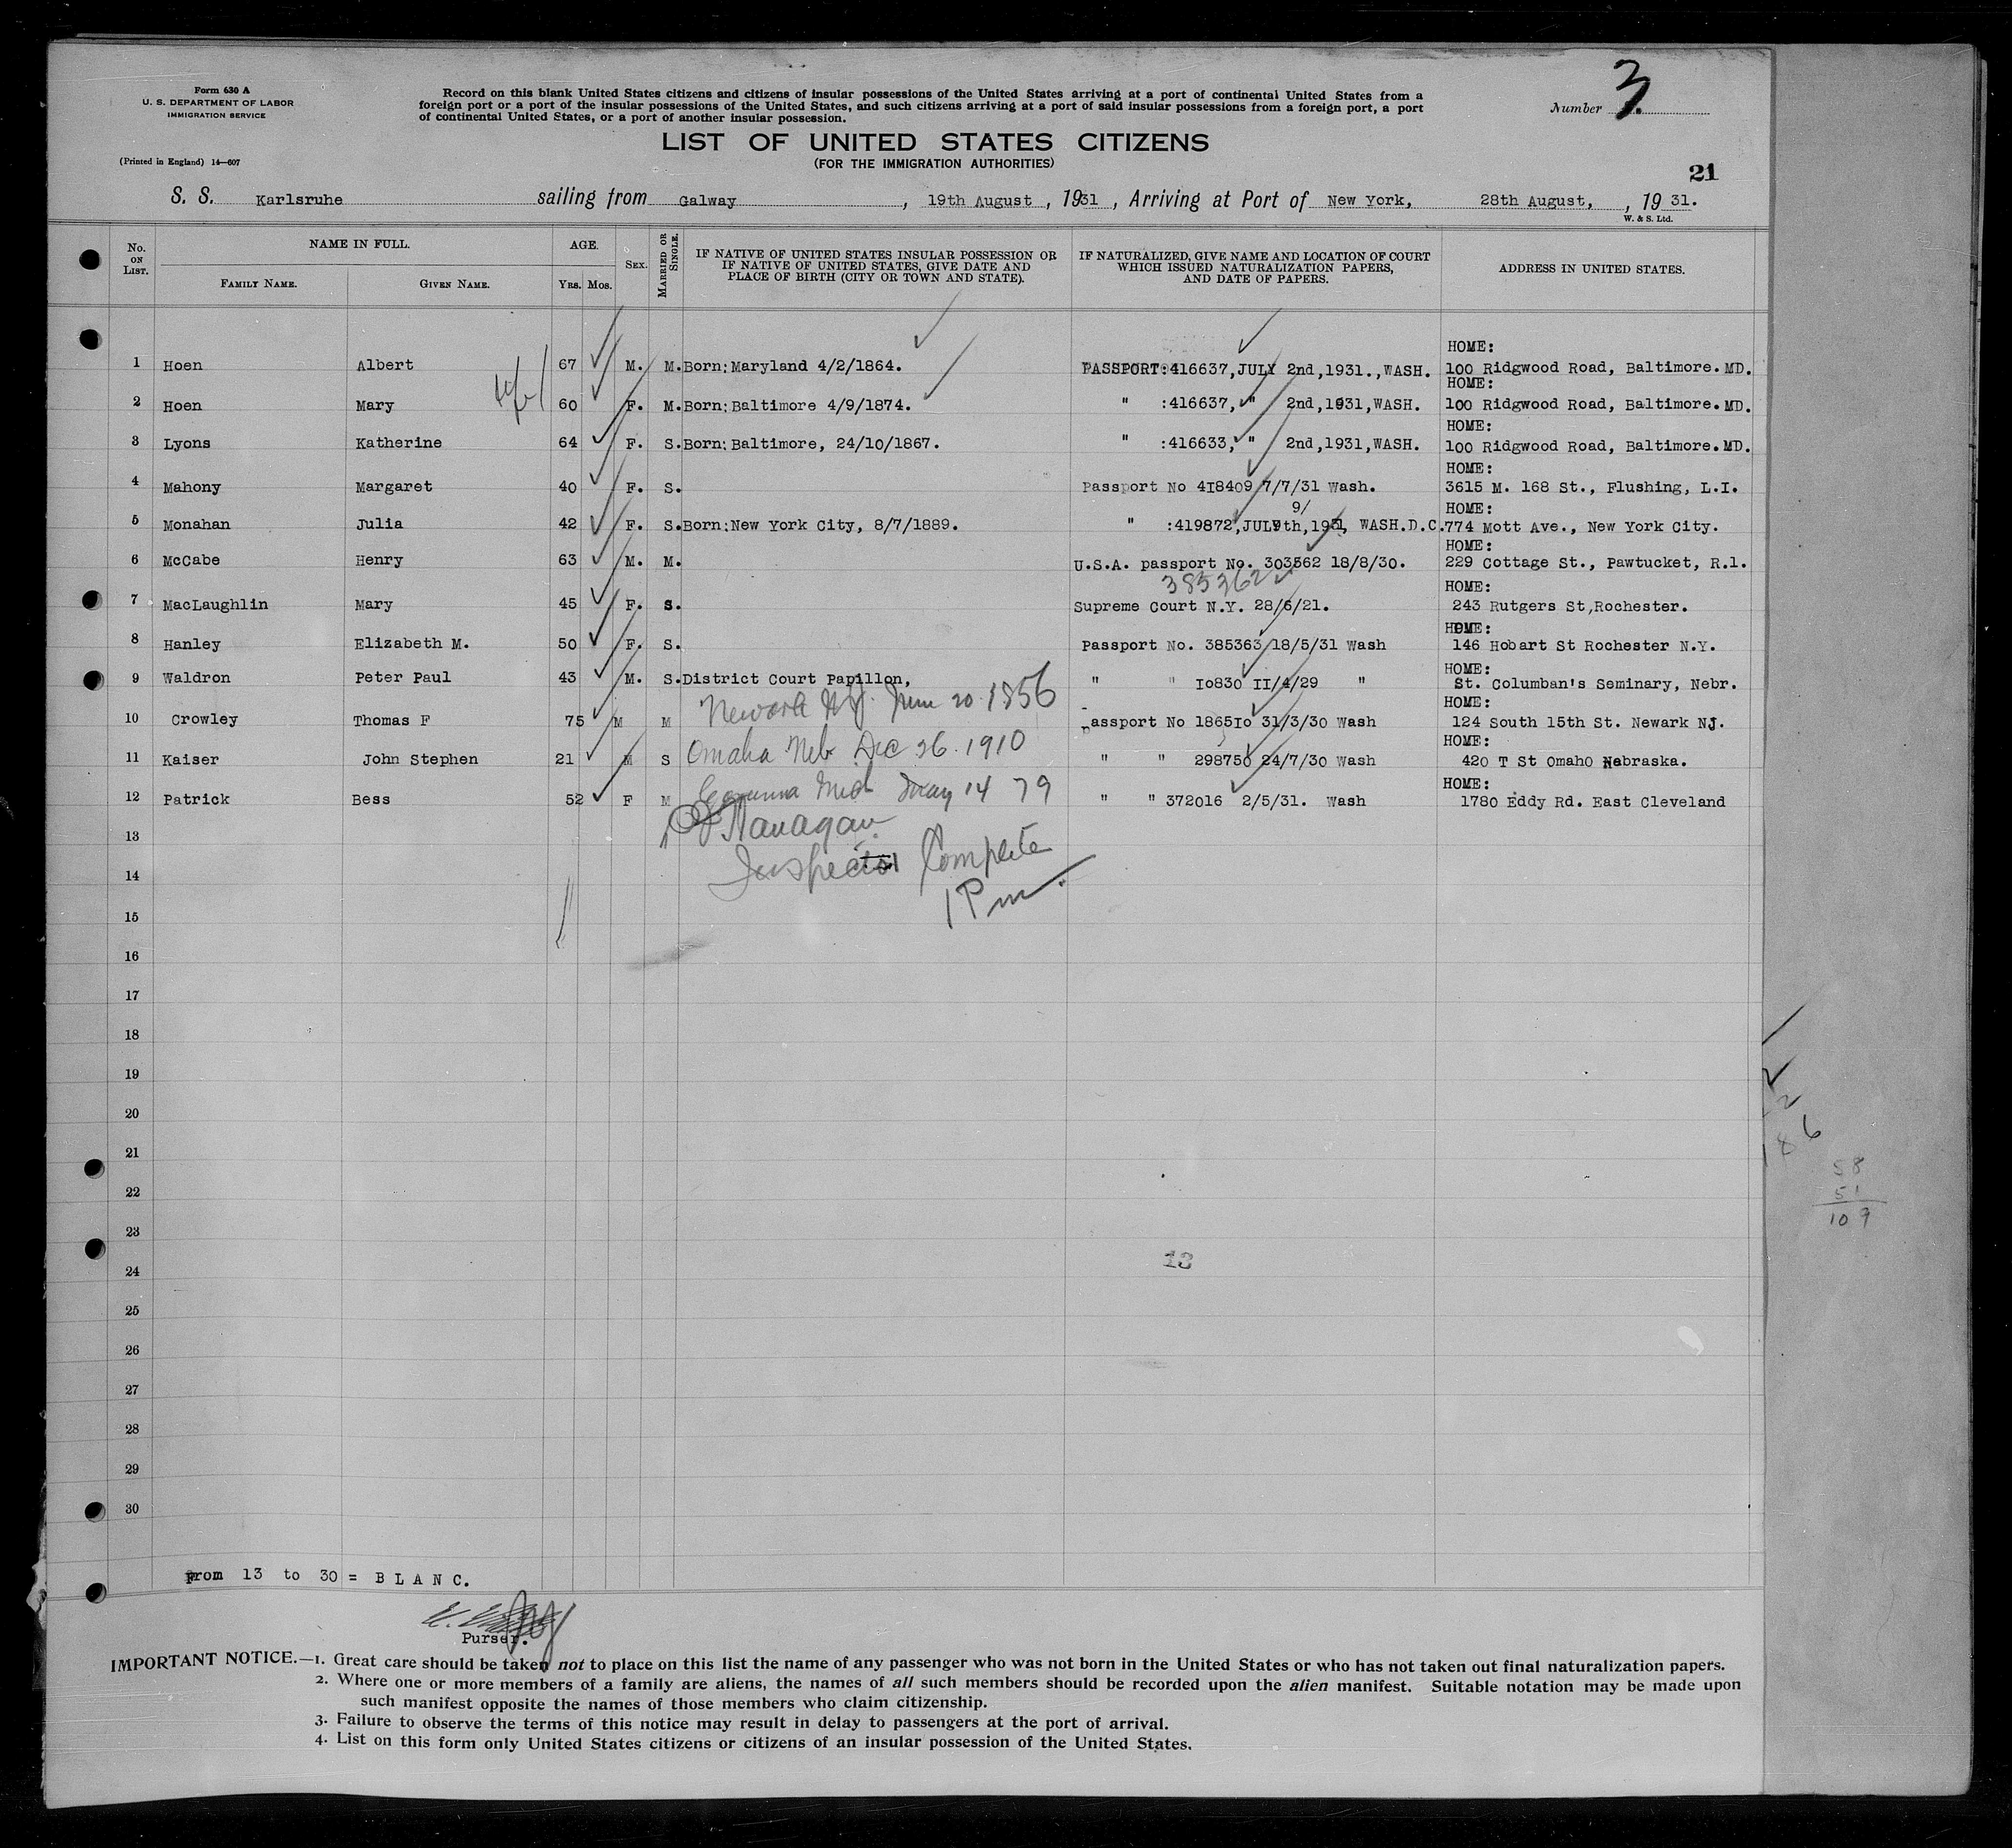 Form 630 A
U. S. DEPARTMENT OF LABOR
IMMIGRATION SERVICE
(Printed in England) 14—607
Record on this blank United States citizens and citizens of insular possessions of the United States arriving at a port of continental United States from a
foreign port or a port of the insular possessions of the United States, and such citizens arriving at a port of said insular possessions from a foreign port, a port
of continental United States, or a port of another insular possession.
Number 3.
LIST OF UNITED STATES CITIZENS
(FOR THE IMMIGRATION AUTHORITIES)
21
S. S. Karlsruhe sailing from Galway, 19th August, 1931, Arriving at Port of New York, 28th August, , 19 31.
W. & S. Ltd.
No. ON LIST.
NAME IN FULL.
FAMILY NAME.
GIVEN NAME.
AGE.
YRS. MOS.
SEX.
MARRIED OR SINGLE.
IF NATIVE OF UNITED STATES INSULAR POSSESSION OR
IF NATIVE OF UNITED STATES, GIVE DATE AND
PLACE OF BIRTH (CITY OR TOWN AND STATE).
IF NATURALIZED, GIVE NAME AND LOCATION OF COURT
WHICH ISSUED NATURALIZATION PAPERS,
AND DATE OF PAPERS.
ADDRESS IN UNITED STATES.
HOME:
1 Hoen Albert 67 M. M. Born:Maryland 4/2/1864. PASSPORT:416637,JULY 2nd,1931.,WASH. 100 Ridgwood Road, Baltimore.MD.
HOME:
2 Hoen Mary 60 F. M. Born:Baltimore 4/9/1874. " :416637, " 2nd,1931,WASH. 100 Ridgwood Road, Baltimore.MD.
HOME:
3 Lyons Katherine 64 F. S. Born:Baltimore, 24/10/1867. " :416633, " 2nd,1931,WASH. 100 Ridgwood Road, Baltimore.MD.
HOME:
4 Mahony Margaret 40 F. S. Passport No 418409 7/7/31 Wash. 3615 M. 168 St., Flushing, L.I.
9/
HOME:
5 Monahan Julia 42 F. S. Born:New York City, 8/7/1889. " :419872,JULY 9th,1931, WASH.D.C. 774 Mott Ave., New York City.
HOME:
6 McCabe Henry 63 M. M. U.S.A. passport No. 303562 18/8/30. 229 Cottage St., Pawtucket, R.l.
385362
HOME:
7 MacLaughlin Mary 45 F. S. Supreme Court N.Y. 28/6/21. 243 Rutgers St,Rochester.
HOME:
8 Hanley Elizabeth M. 50 F. S. Passport No. 385363 18/5/31 Wash 146 Hobart St Rochester N.Y.
HOME:
9 Waldron Peter Paul 43 M. S. District Court Papillon, " " I0830 II/4/29 " St. Columban's Seminary, Nebr.
HOME:
10 Crowley Thomas F 75 M M Newark N.J. 20. 1856 assport No 1865I0 31/3/30 Wash 124 South 15th St. Newark NJ.
HOME:
11 Kaiser John Stephen 21 M S Omaha Neb Dec 26. 1910 " " 298750 24/7/30 Wash 420 T St OmahO Nebraska.
HOME:
12 Patrick Bess 52 F M Mich May 14 79 " " 372016 2/5/31. Wash 1780 Eddy Rd. East Cleveland
13 Flanagan
Inspector Complete
14
1 Pm.
15
16
17
18
19
20
21
22
23
24
13
25
26
27
28
29
30
2
2
6
18
58
51
109
From 13 to 30 = B L A N C.
Purser.
IMPORTANT NOTICE.—1. Great care should be taken not to place on this list the name of any passenger who was not born in the United States or who has not taken out final naturalization papers.
2. Where one or more members of a family are aliens, the names of all such members should be recorded upon the alien manifest. Suitable notation may be made upon
such manifest opposite the names of those members who claim citizenship.
3. Failure to observe the terms of this notice may result in delay to passengers at the port of arrival.
4. List on this form only United States citizens or citizens of an insular possession of the United States.